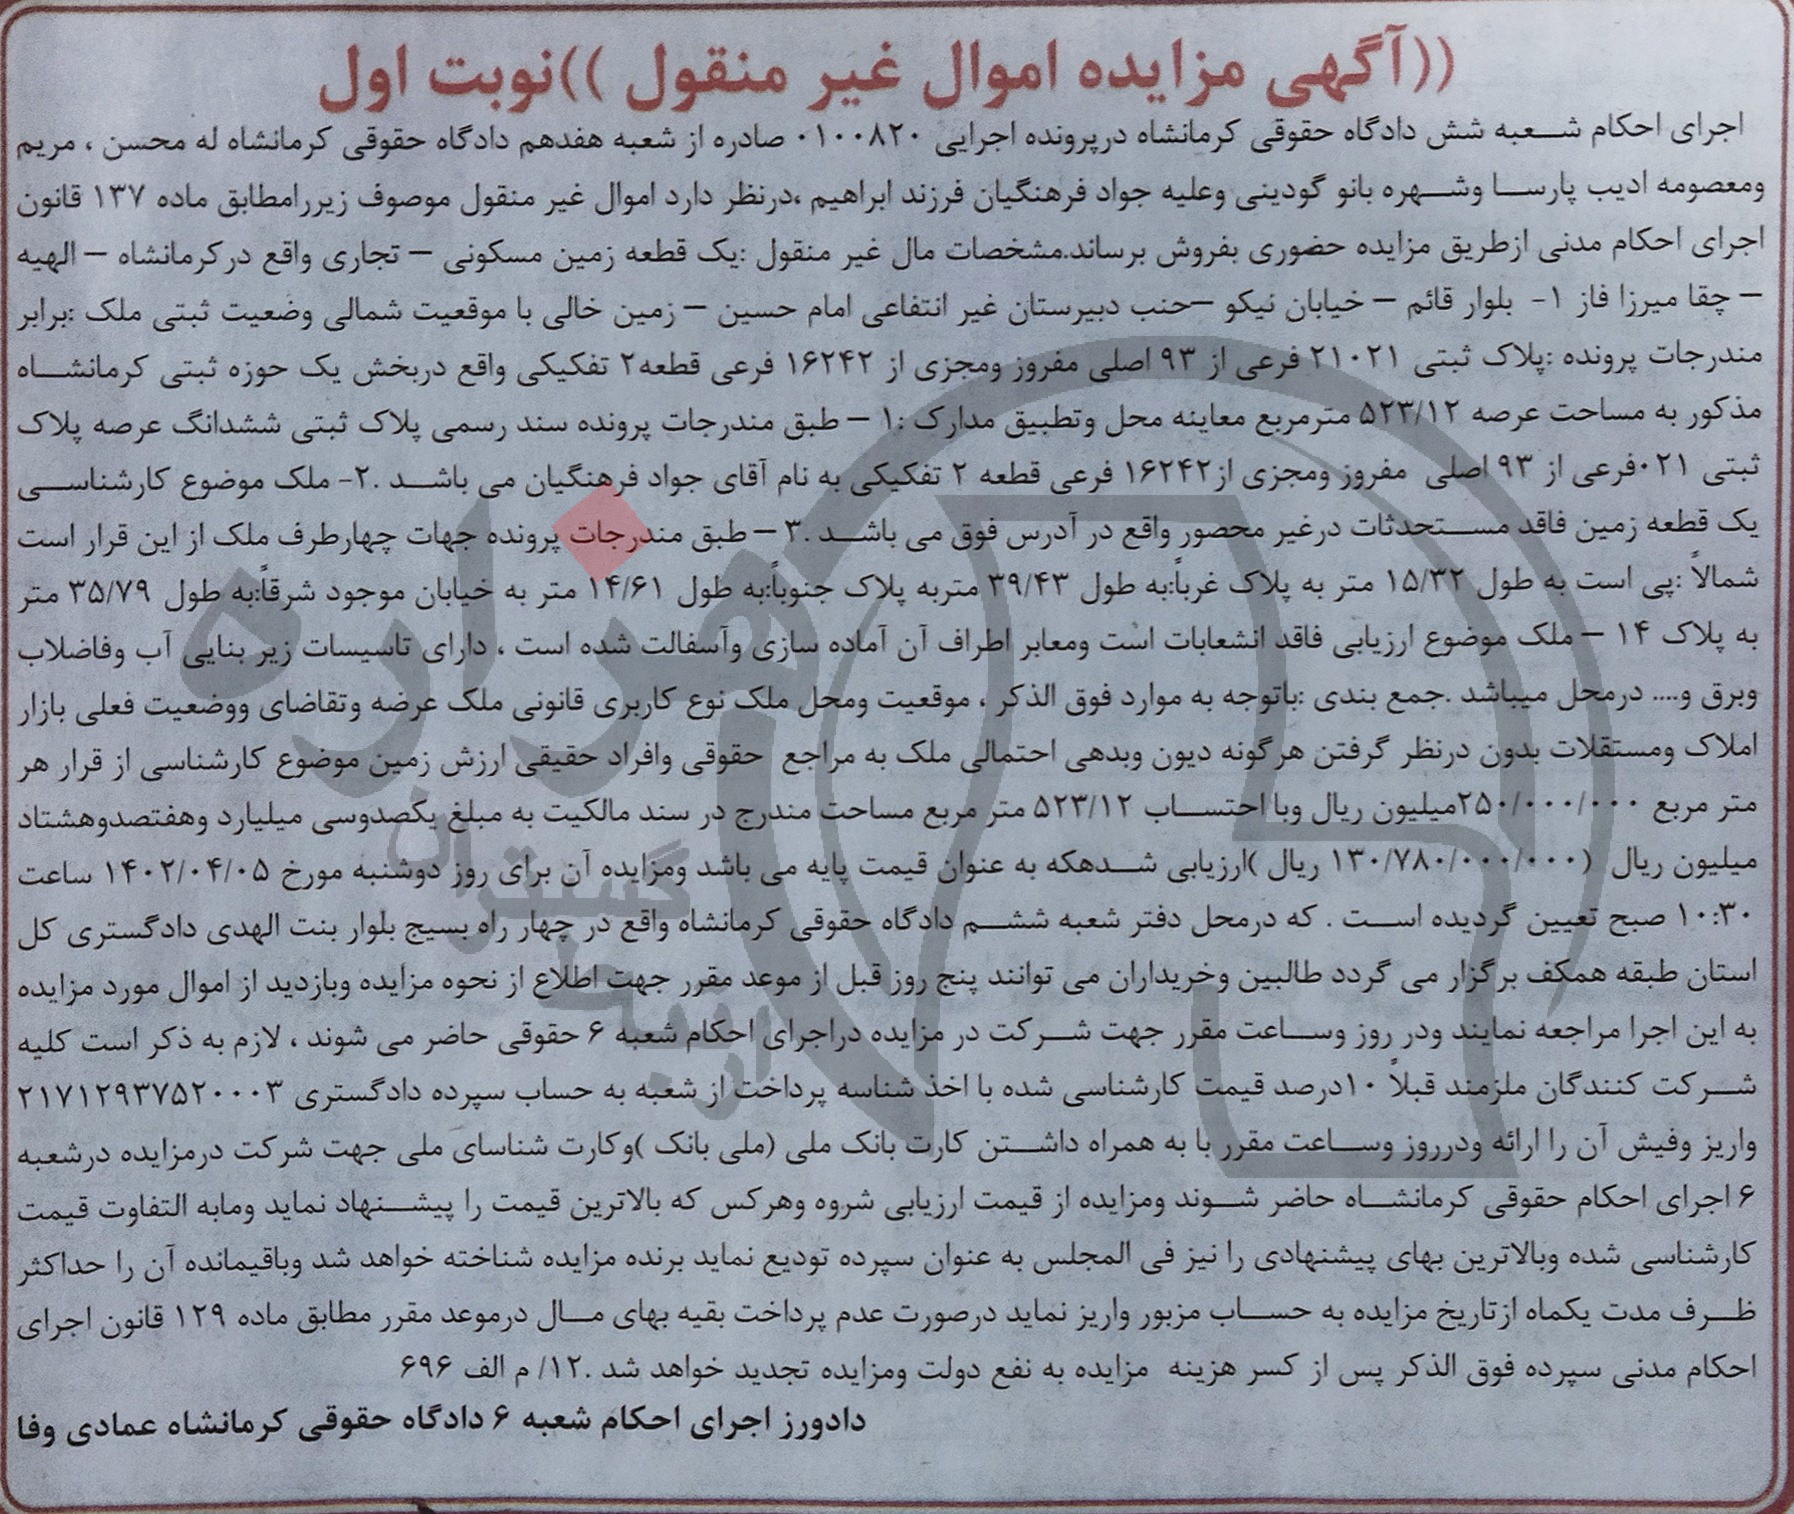 ((آگهی مزایده اموال غیر منقول ))نوبت اول
اجرای احکام شعبه شش دادگاه حقوقی کرمانشاه درپرونده اجرایی ۰۱۰۰۸۲۰ صادره از شعبه هفدهم دادگاه حقوقی کرمانشاه له محسن ، مریم
ومعصومه ادیب پارسا وشهره بانو گودینی وعلیه جواد فرهنگیان فرزند ابراهیم ،درنظر دارد اموال غیر منقول موصوف زیررامطابق ماده ۱۳۷ قانون
اجرای احکام مدنی ازطریق مزایده حضوری بفروش برساند.مشخصات مال غیر منقول :یک قطعه زمین مسکونی – تجاری واقع درکرمانشاه – الهیه
– چقا میرزا فاز ۱- بلوار قائم – خیابان نیکو –حنب دبیرستان غیر انتفاعی امام حسین – زمین خالی با موقعیت شمالی وضعیت ثبتی ملک :برابر
مندرجات پرونده :پلاک ثبتی ۲۱۰۲۱ فرعی از ۹۳ اصلی مفروز ومجزی از ۱۶۲۴۲ فرعی قطعه۲ تفکیکی واقع دربخش یک حوزه ثبتی کرمانشاه
مذکور به مساحت عرصه ۵۲۳/۱۲ مترمربع معاینه محل وتطبیق مدارک :۱ – طبق مندرجات پرونده سند رسمی پلاک ثبتی ششدانگ عرصه پلاک
ثبتی ۰۲۱فرعی از ۹۳ اصلی مفروز ومجزی از۱۶۲۴۲ فرعی قطعه ۲ تفکیکی به نام آقای جواد فرهنگیان می باشد .۲- ملک موضوع کارشناسی
یک قطعه زمین فاقد مستحدثات درغیر محصور واقع در آدرس فوق می باشد .۳ – طبق مندرجات پرونده جهات چهارطرف ملک از این قرار است
شمالاً :پی است به طول ۱۵/۳۲ متر به پلاک غرباً:به طول ۳۹/۴۳ متربه پلاک جنوباً:به طول ۱۴/۶۱ متر به خیابان موجود شرقاً:به طول ۳۵/۷۹ متر
به پلاک ۱۴ – ملک موضوع ارزیابی فاقد انشعابات است ومعابر اطراف آن آماده سازی وآسفالت شده است ، دارای تاسیسات زیر بنایی آب وفاضلاب
وبرق و.... درمحل میباشد .جمع بندی :باتوجه به موارد فوق الذکر ، موقعیت ومحل ملک نوع کاربری قانونی ملک عرضه وتقاضای ووضعیت فعلی بازار
املاک ومستقلات بدون درنظر گرفتن هرگونه دیون وبدهی احتمالی ملک به مراجع حقوقی وافراد حقیقی ارزش زمین موضوع کارشناسی از قرار هر
متر مربع ۲۵۰/۰۰۰/۰۰۰میلیون ریال وبا احتساب ۵۲۳/۱۲ متر مربع مساحت مندرج در سند مالکیت به مبلغ یکصدوسی میلیارد وهفتصدوهشتاد
میلیون ریال (۱۳۰/۷۸۰/۰۰۰/۰۰۰ ریال )ارزیابی شدهکه به عنوان قیمت پایه می باشد ومزایده آن برای روز دوشنبه مورخ ۱۴۰۲/۰۴/۰۵ ساعت
۱۰:۳۰ صبح تعیین گردیده است . که درمحل دفتر شعبه ششم دادگاه حقوقی کرمانشاه واقع در چهار راه بسیج بلوار بنت الهدی دادگستری کل
استان طبقه همکف برگزار می گردد طالبین وخریداران می توانند پنج روز قبل از موعد مقرر جهت اطلاع از نحوه مزایده وبازدید از اموال مورد مزایده
به این اجرا مراجعه نمایند ودر روز وساعت مقرر جهت شرکت در مزایده دراجرای احکام شعبه ۶ حقوقی حاضر می شوند ، لازم به ذکر است کلیه
شرکت کنندگان ملزمند قبلاً ۱۰درصد قیمت کارشناسی شده با اخذ شناسه پرداخت از شعبه به حساب سپرده دادگستری ۲۱۷۱۲۹۳۷۵۲۰۰۰۳
واریز وفیش آن را ارائه ودرروز وساعت مقرر با به همراه داشتن کارت بانک ملی (ملی بانک )وکارت شناسای ملی جهت شرکت درمزایده درشعبه
۶ اجرای احکام حقوقی کرمانشاه حاضر شوند ومزایده از قیمت ارزیابی شروه وهرکس که بالاترین قیمت را پیشنهاد نماید ومابه التفاوت قیمت
کارشناسی شده وبالاترین بهای پیشنهادی را نیز فی المجلس به عنوان سپرده تودیع نماید برنده مزایده شناخته خواهد شد وباقیمانده آن را حداکثر
ظرف مدت یکماه ازتاریخ مزایده به حساب مزبور واریز نماید درصورت عدم پرداخت بقیه بهای مال درموعد مقرر مطابق ماده ۱۲۹ قانون اجرای
احکام مدنی سپرده فوق الذکر پس از کسر هزینه مزایده به نفع دولت ومزایده تجدید خواهد شد .۱۲/ م الف ۶۹۶
دادورز اجرای احکام شعبه ۶ دادگاه حقوقی کرمانشاه عمادی وفا
هزاره